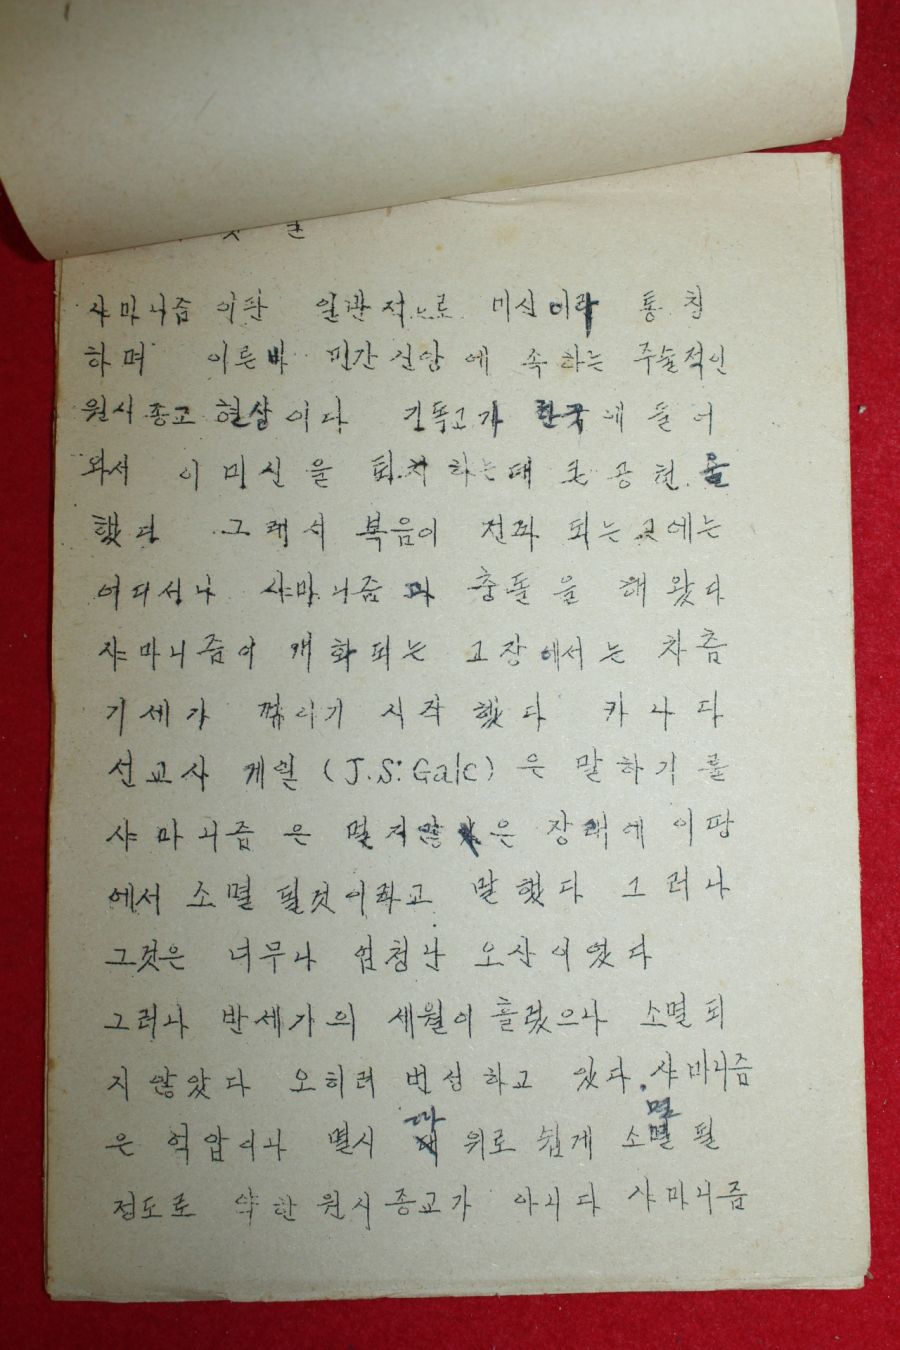 샤마니즘 이란 일반적으로 미신이라 통칭
하며 이른바 민간신앙에 속하는 주술적인
원시종교 현상이다 기독교가 한국에 들어
와서 이 미신을 퇴치하는데 큰 공헌을
했다 그래서 복음이 전파 되는 곳에는
어디서나 샤마니즘과 충돌을 해왔다
샤마니즘이 개화되는 고장에서는 차츰
기세가 꺾이기 시작했다 카나다
선교사 게일 (J.S. Gale) 은 말하기를
샤마니즘은 멀지않은 장래에 이땅
에서 소멸 될것이라고 말했다 그러나
그것은 너무나 엄청난 오산이였다
그러나 반세기의 세월이 흘렀으나 소멸되
지 않았다 오히려 번성하고 있다. 샤마니즘
은 억압이나 멸시 따위로 쉽게 소멸될
정도로 약한 원시종교가 아니다 샤마니즘